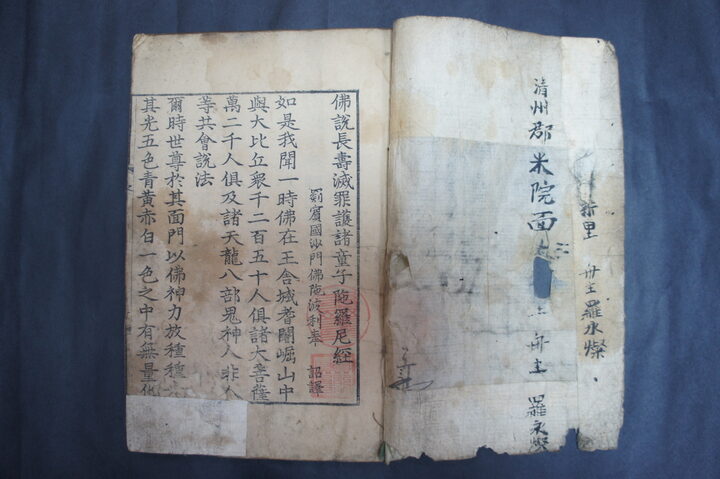 清州郡米院面
三
舟主
羅永燦
新里 舟主羅永燦
佛說長壽滅罪護諸童子陁羅尼經
罽賓國沙門佛陁波利奉 詔譯
如是我聞一時佛在王舍城耆闍崛山中
與大比丘衆千二百五十人俱諸大菩薩
萬二千人俱及諸天龍八部鬼神人非人
等共會說法
爾時世尊於其面門以佛神力放種種
其光五色青黃赤白一色之中有無量化